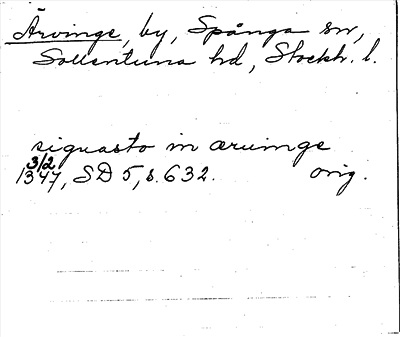 Ärvinge, by, Spånga sn,
Sollentuna hd, Stockh. l.
siguasto in æruinge
3/2
1347, SD 5, s. 632. orig.